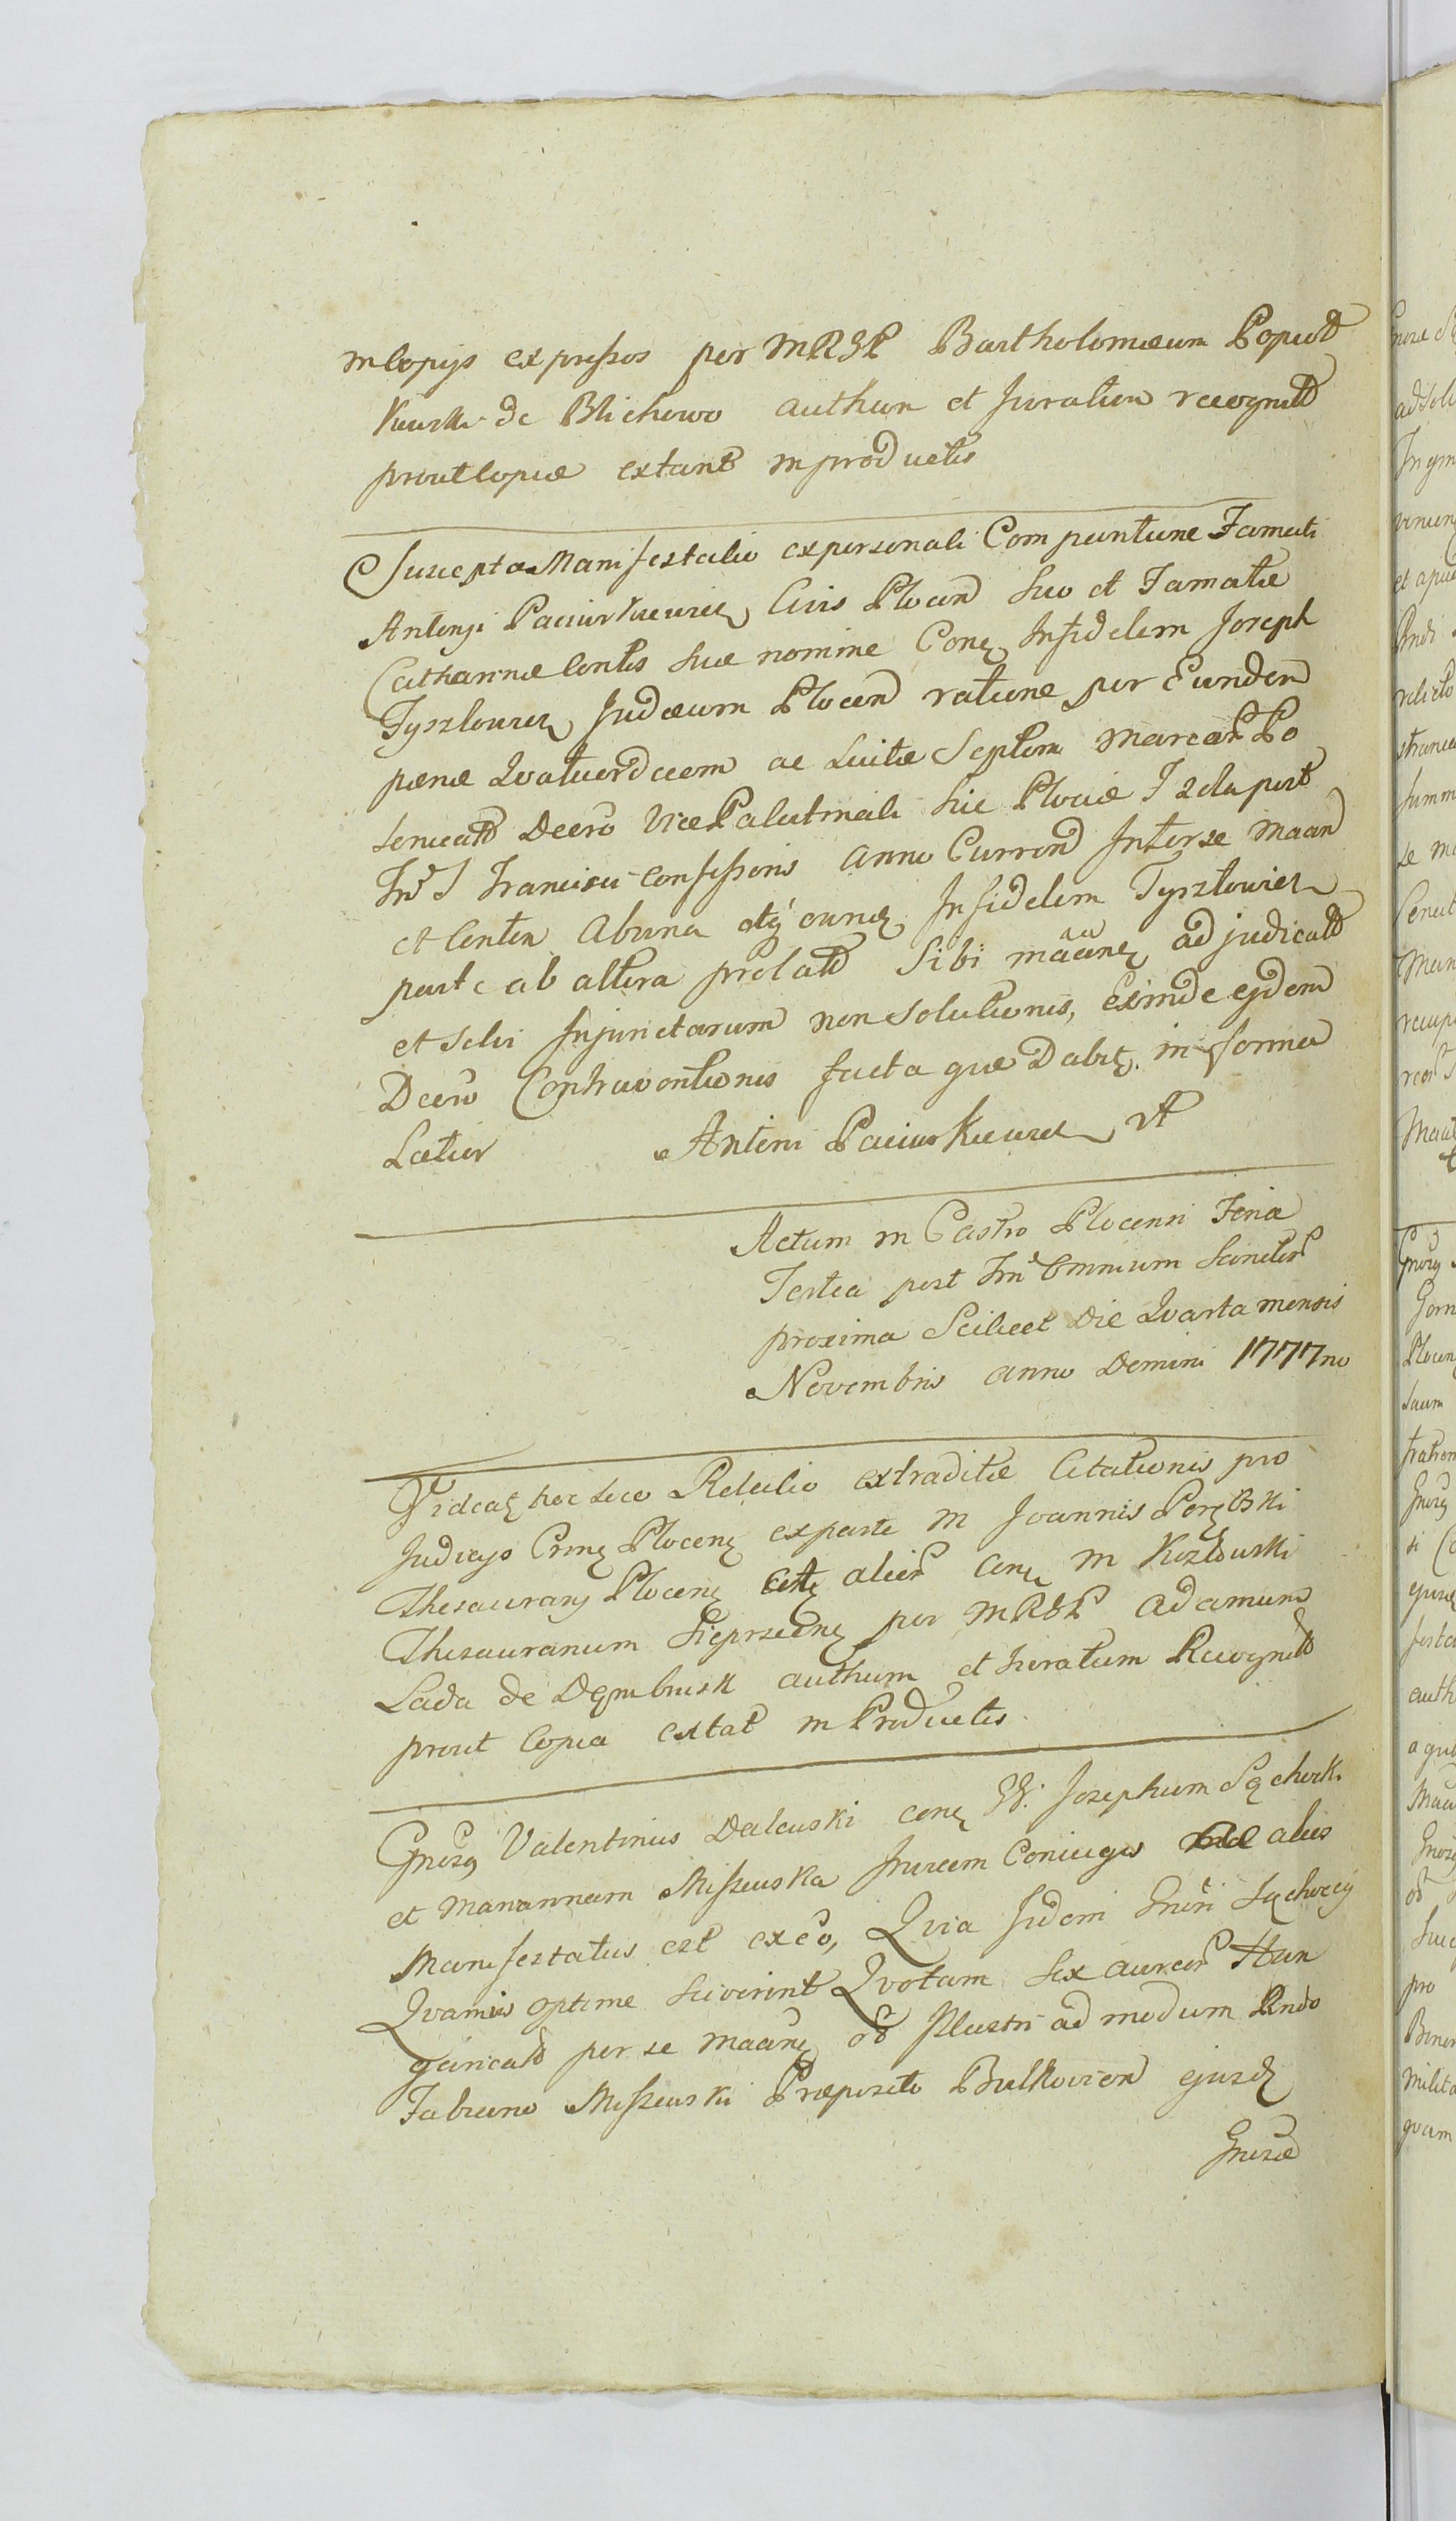 in Copijs expressos per MRSP Bartholomæum Popiołd
kursk de Blichowo authen et Juratum recognitd
prout Copiæ extant in productis
Suscepta Manifestatio ex personali Comparitione Famati
Antonji Paciorkiewicz Civis Plocend suo et Famatæ
Catharinæ Contis suæ nomine Cone Infidelem Joseph
Tyszlowicz Judæum Plocend ratione per Eundem
pænæ Qvatuordecem ac Luitæ Septem marcar Po
lonicad Decro Vice Palatinali hic Plociæ
post
Fn S Francisci Confessoris anno Currend Inter se maan
et Conten ab una atq eundz Infidelem Tyszlowicz
parte ab altera prolatd Sibi maane adjudicatd
et Solvi Injunctarum non Solutionis, Exinde ejdem
Decro Contraventionis facta quæ Dabitz in forma
Latior Antoni Paciorkiewicz
Actum in Castro Plocensi Feria
Tertia post Fm Omnium Sanctor
proxima Scilicet Die Qvarta mensis
Novembris anno Domini 1777mo
Videatz hoc loco Relatio extraditæ Citationis pro
Judicijs Plocens ex parte M Joannis Porębski
Thesaurarij Plocens alior cone M Kozłowski
Thesaurarium Sieprscens per MRSP Adamum
Lada de Dęmbinsk authum et Juratum Recognitd
prout Copia extat in Productis
Gnosus Valentinus Dalewski cone GG: Josephum Sąchock
et Mariannam Miszewska Juxeem Coniuges aliis
Manifestatus est ex eo, Qvia Iidem Gnosi Sąchoccy
Qvamvis optime sciverint Qvotam Sex aureor Hun
garicald per se maane ab Illustri ad modum Rndo
Fabiano Miszewski Præposito Bulkovien ejusd
Gnosæ